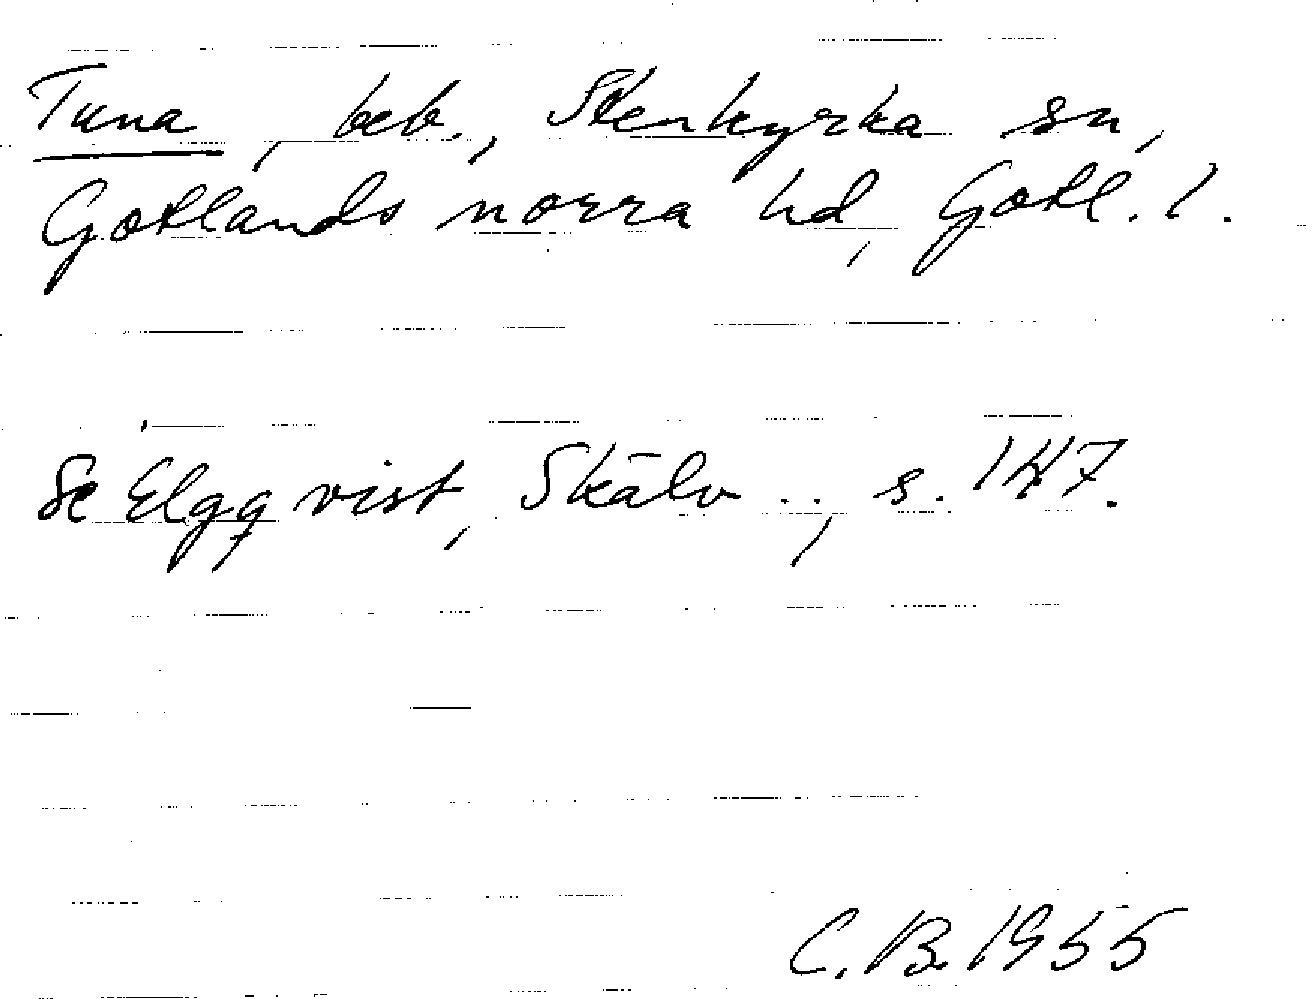 Tuna, beb., Stenkyrka sn,
Gotlands norra hd, Gotl. l.
Se Elgqvist, Skälv .., s. 147.
C. B. 1955